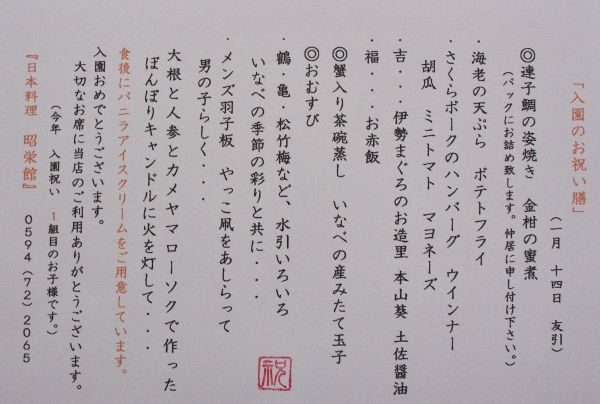 「入園のお祝い膳」
（一月　十四日　友引）
◎連子鯛の姿焼き　金柑の蜜煮
（パックにお詰め致します。仲居に申し付け下さい。）
・海老の天ぷら　ポテトフライ
・さくらポークのハンバーグ　ウインナー
胡瓜　ミニトマト　マヨネーズ
・吉・・・伊勢まぐろのお造里　本山葵　土佐醤油
・福・・・お赤飯
◎蟹入り茶碗蒸し　いなべの産みたて玉子
◎おむすび
・鶴・亀・松竹梅など、水引いろいろ
いなべの季節の彩りと共に・・・
・メンズ羽子板　やっこ凧をあしらって
男の子らしく・・・
大根と人参とカメヤマローソクで作った
ぼんぼりキャンドルに火を灯して・・・
食後にバニラアイスクリームをご用意しています。
入園おめでとうございます。
大切なお席に当店のご利用ありがとうございます。
（今年　入園祝い　1組目のお子様です。）
『日本料理　昭栄館』　0594（72）2065
祝